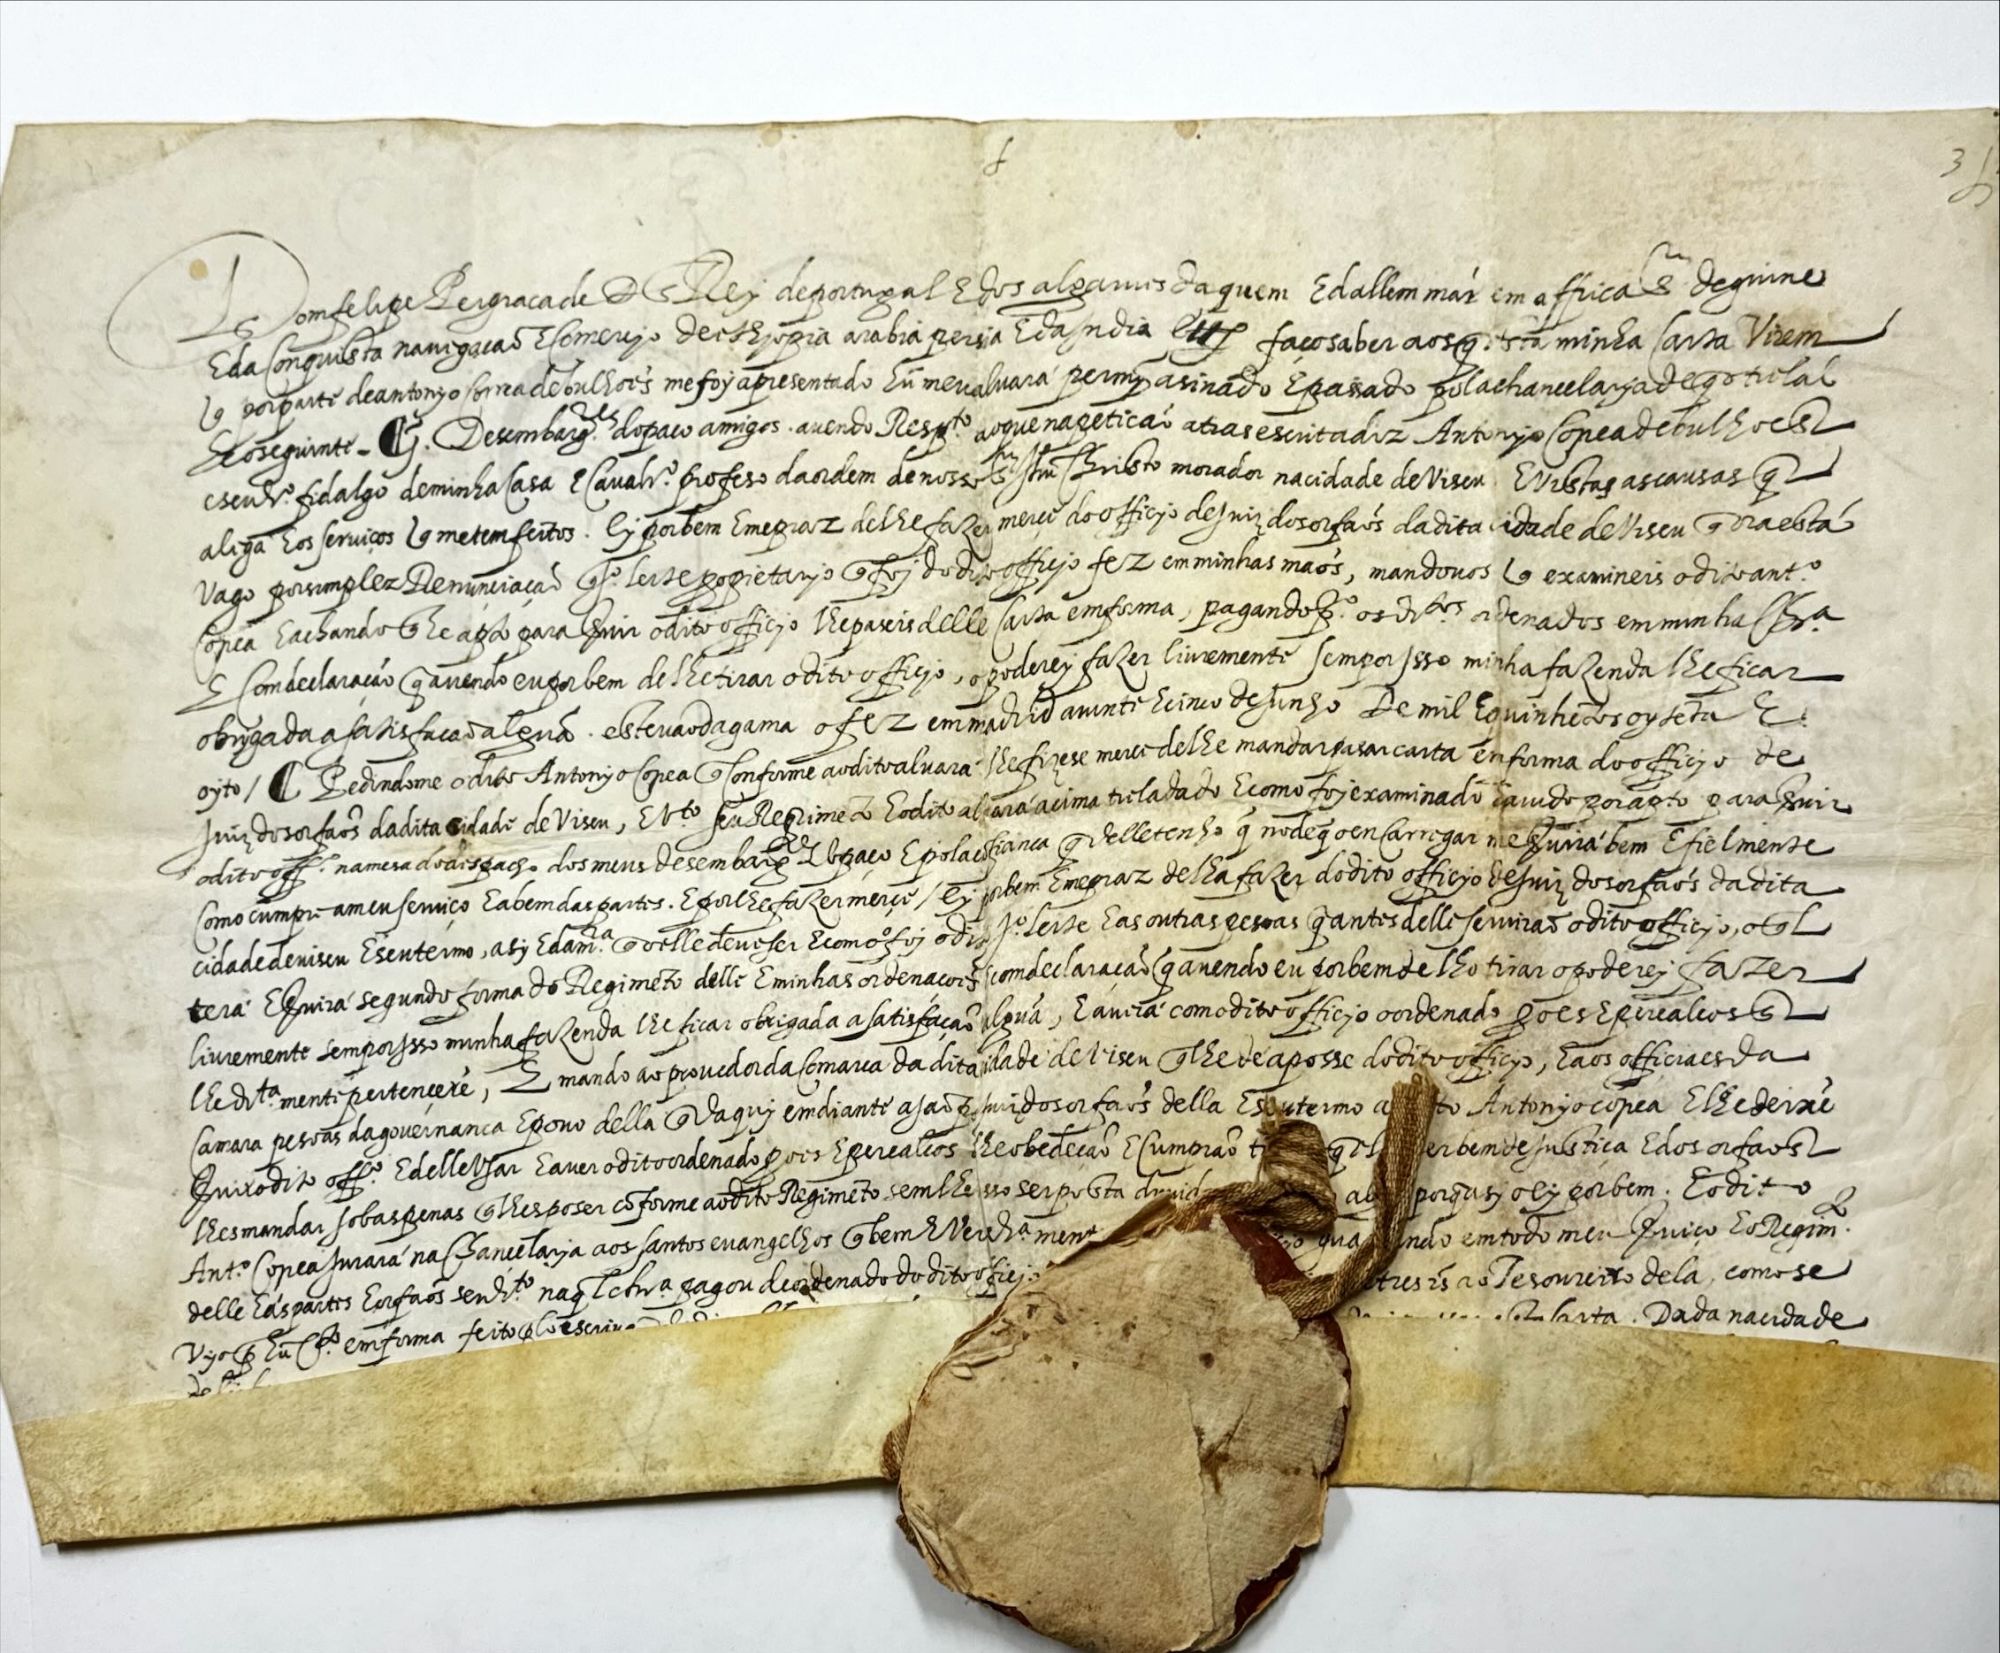 Dom felipe per graca de Ds Rey de portugal E dos algarues daquem E dallem mar em affrica Sor de guine
E da Conquista nauegacaõ E Comercjo de ethyopia arabia persia E da Jndia &c faço saber aos q̃ esta minha Carta Virem
q̃ por parte de antonyo Correa de bulhoẽs me foy apresentado hũ meu aluara per my asinado E passado pola chancelarja de q̃ o trelado
he o seguinte - Desembargres do paço amigos. auendo Respto ao que na petiçaõ atras escrita diz Antonyo Copea de bulhoes
e seu fro fidalgo de minha Casa E Caualro profeso da ordem de nosso sor Jhu Christo morador na cidade de Viseu E Vistas as causas q̃
aliga E os seruiços q̃ me tem feitos. Ey por bem E me praz de lhe fazer merçe do officjo de Juiz dos orfaõs da dita cidade de Viseu q̃ ora está
Vago por simplez Renunciaçaõ q̃ Jo leite propietarjo q̃ foj do dito officjo fez em minhas maõs, mandouos q̃ examineis o dito anto
Copea E achando q̃ he apto para seruir o dito officjo lhe paseis delle Carta em forma, pagando pro os drtos ordenados em minha Chra
E Com declaraçaõ q̃ auendo eu por bem de lhe tirar o dito officjo, o poderej fazer liuremente sem por Jsso minha fazenda lhe ficar
obrygada a satisfacaõ algũa. esteuaõ da gama o fez em madrid a uinte E cinco de Junho De mil E quinhẽtos oytẽta E
oyto / Pedindome o dito Antonyo Copea q̃ Conforme ao dito aluara lhe fizese merçe de lhe mandar pasar carta en forma do officjo de
Juiz dos orfaõs da dita cidade de Viseu, E Vto seu Regimẽto E o dito aluara acima treladado E como foj examinado E auido por apto para seruir
o dito offo na mesa do despacho dos meus desembargres do paço E pola cofiança q̃ delle tenho q̃ no de q̃ o encarregar me seruirá bem E fielmente
Como cumpre a meu seruiço E a bem das partes. E por lhe fazer merçe / Ey por bem E me praz de lha fazer do dito officjo de Juiz dos orfaõs da dita
cidade de uiseu E seu termo, asy E da mra q̃ o elle deue ser E como o foj o dito Jo leite E as outras pesoas q̃ antes delle seruiraõ o dito officjo, o ql
terá E seruirá segundo forma do Regimẽto delle E minhas ordenacoẽs com declaraçaõ q̃ auendo eu por bem de lho tirar o poderej fazer
liuremente sem por Jsso minha fazenda lhe ficar obrigada a satisfaçaõ algũa, E auerá com o dito officjo o ordenado proes E percalcos q̃
lhe drtamente pertençerẽ, E mando ao prouedor da Comarca da dita cidade de Viseu q̃ lhe dê a posse do dito officjo, E aos officiaes da
Camara pesoas da gouernança E pouo della q̃ daquy em diante ajaõ por Juiz dos orfaõs della E seu termo ao dito Antonyo copea E lhe deixẽ
seruir o dito offo E delle Vsar E auer o dito ordenado proes E percalcos lhe obedeçaõ E Cumpraõ q̃ por bem de Justiça E dos orfaõs
lhes mandar sob as penas q̃ lhes poser cõforme ao dito Regimẽto sem lhe Jsso ser posta duuida porq̃ asy o ey por bem. E o dito
Anto Copea Jurará na Chancelarja aos santos euangelhos q̃ bem E Verdramente em todo meu seruiço E o Regimto
delle E ás partes E orfaõs seu drto na ql chra pagou de ordenado do dito officjo tres rs ao Tesoureiro dela, como se
Vyo p hũ Cto em forma feito plo escriuaõ carta. Dada na cidade
de